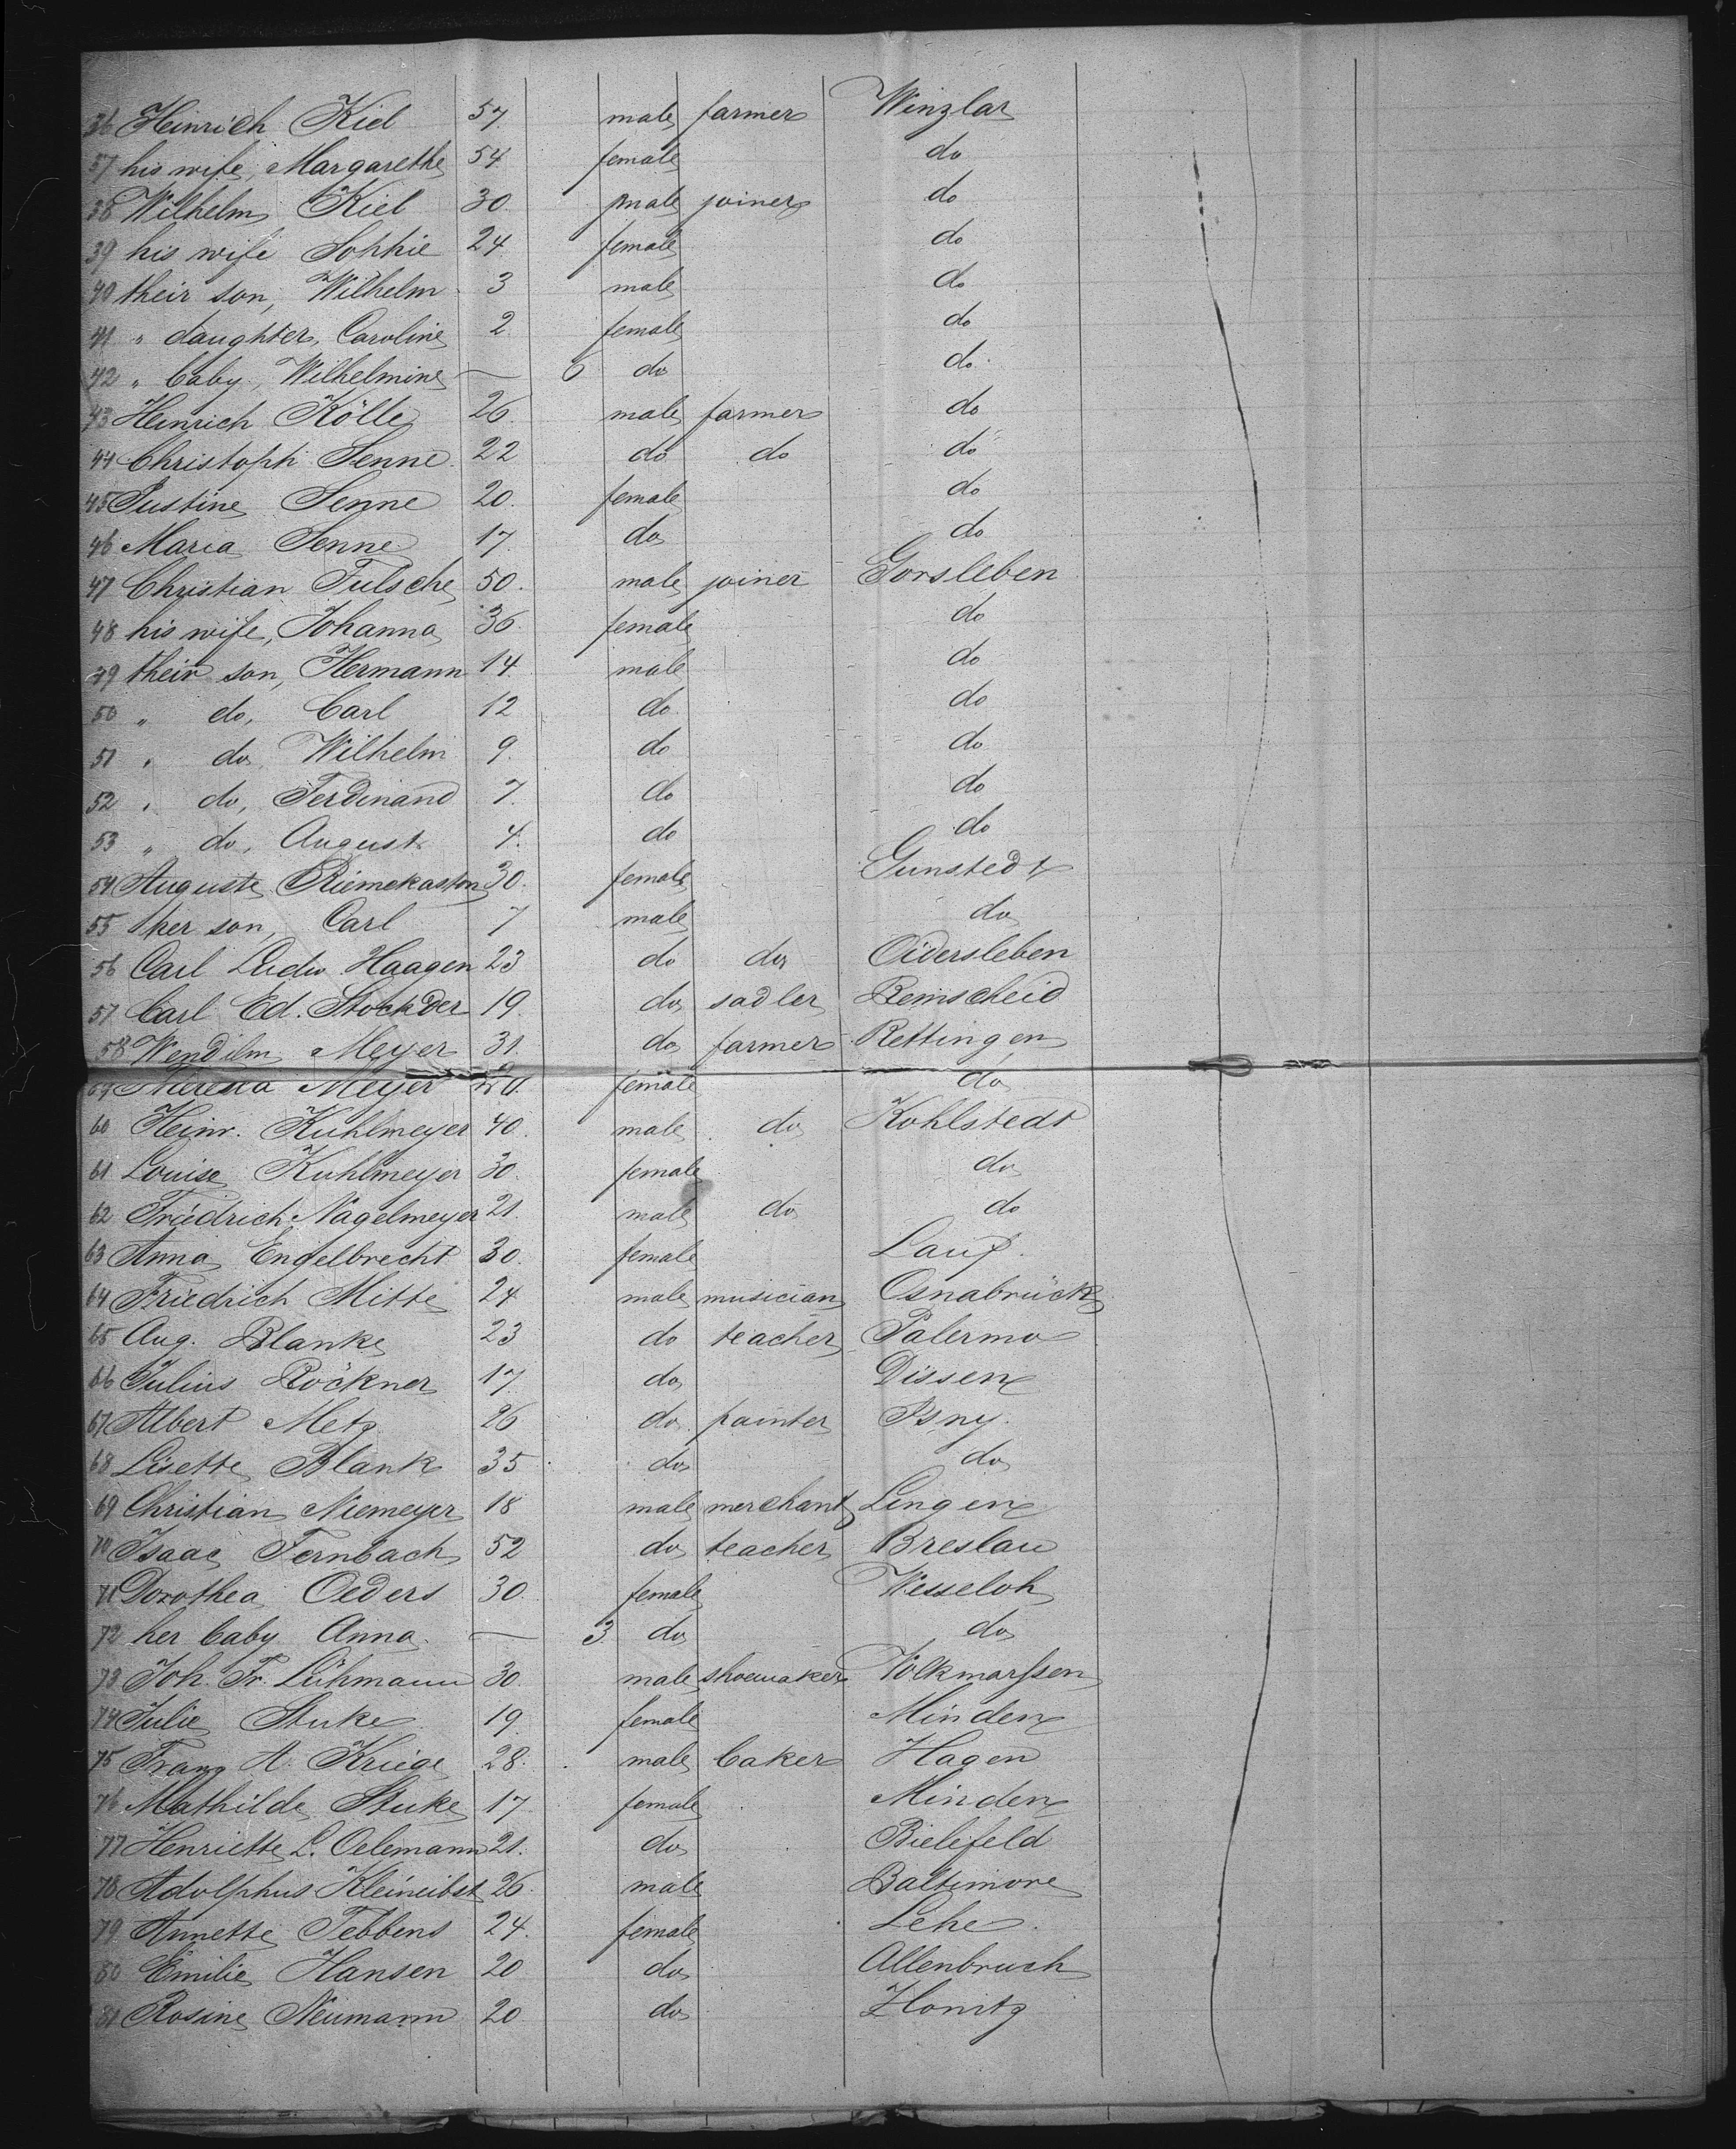 36 Heinrich Kiel 57. male farmer Winzlar
37 his wife, Margarethe 54. female do
38 Wilhelm Kiel 30. male joiner do
39 his wife Sophie 24. female do
40 their son, Wilhelm 3 male do
41 " daughter, Caroline 2. female do
42 " baby, Wilhelmine — 6 do do
43 Heinrich Kölle 26. male farmer do
44 Christoph Senne 22 do do do
45 Justine Senne 20. female do
46 Maria Senne 17. do do
47 Christian Tulsche 50. male joiner Gorsleben
48 his wife, Johanna 36. female do
49 their son, Hermann 14. male do
50 " do, Carl 12 do do
51 " do, Wilhelm 9. do do
52 " do, Ferdinand 7. do do
53 " do, August 4. do do
54 Auguste Riemekasten 30. female Gunstedt
55 her son, Carl 7 male do
56 Carl Ludw. Haagen 23 do do Oidersleben
57 Carl Ed. Stockder 19. do sadler Remscheid
58 Wendilm Meyer 31. do farmer Rettingen
59 Theresia Meyer female do
60 Heinr. Kuhlmeyer 40. male do Kohlstedt
61 Louise Kuhlmeyer 30. female do
62 Friedrich Nagelmeyer 21. male do do
63 Anna Engelbrecht 30. female Lauf.
64 Friedrich Mitte 24 male musician Osnabrück
65 Aug. Blanke 23 do teacher Palermo
66 Julius Röckner 17. do Dissen
67 Albert Metz 26 do painter Isny.
68 Lisette Blank 35 do do
69 Christian Niemeyer 18 male merchant Lingen
70 Isaac Fernbach 52 do teacher Breslau
71 Dorothea Oeders 30. female Wesseloh
72 her baby Anna — 3. do do
73 Joh. Fr. Lühmann 30. male shoemaker Volkmarssen
74 Julie Stuke 19. female Minden
75 Franz A. Kriege 28. male baker Hagen
76 Mathilde Stuke 17. female Minden
77 Henriette L. Oelemann 21. do Bielefeld
78 Adolphus Kleineibst 26. male Baltimore
79 Annette Tebbens 24. female Lehe.
80 Emilie Hansen 20 do Allenbruch
81 Rosine Neumann 20 do